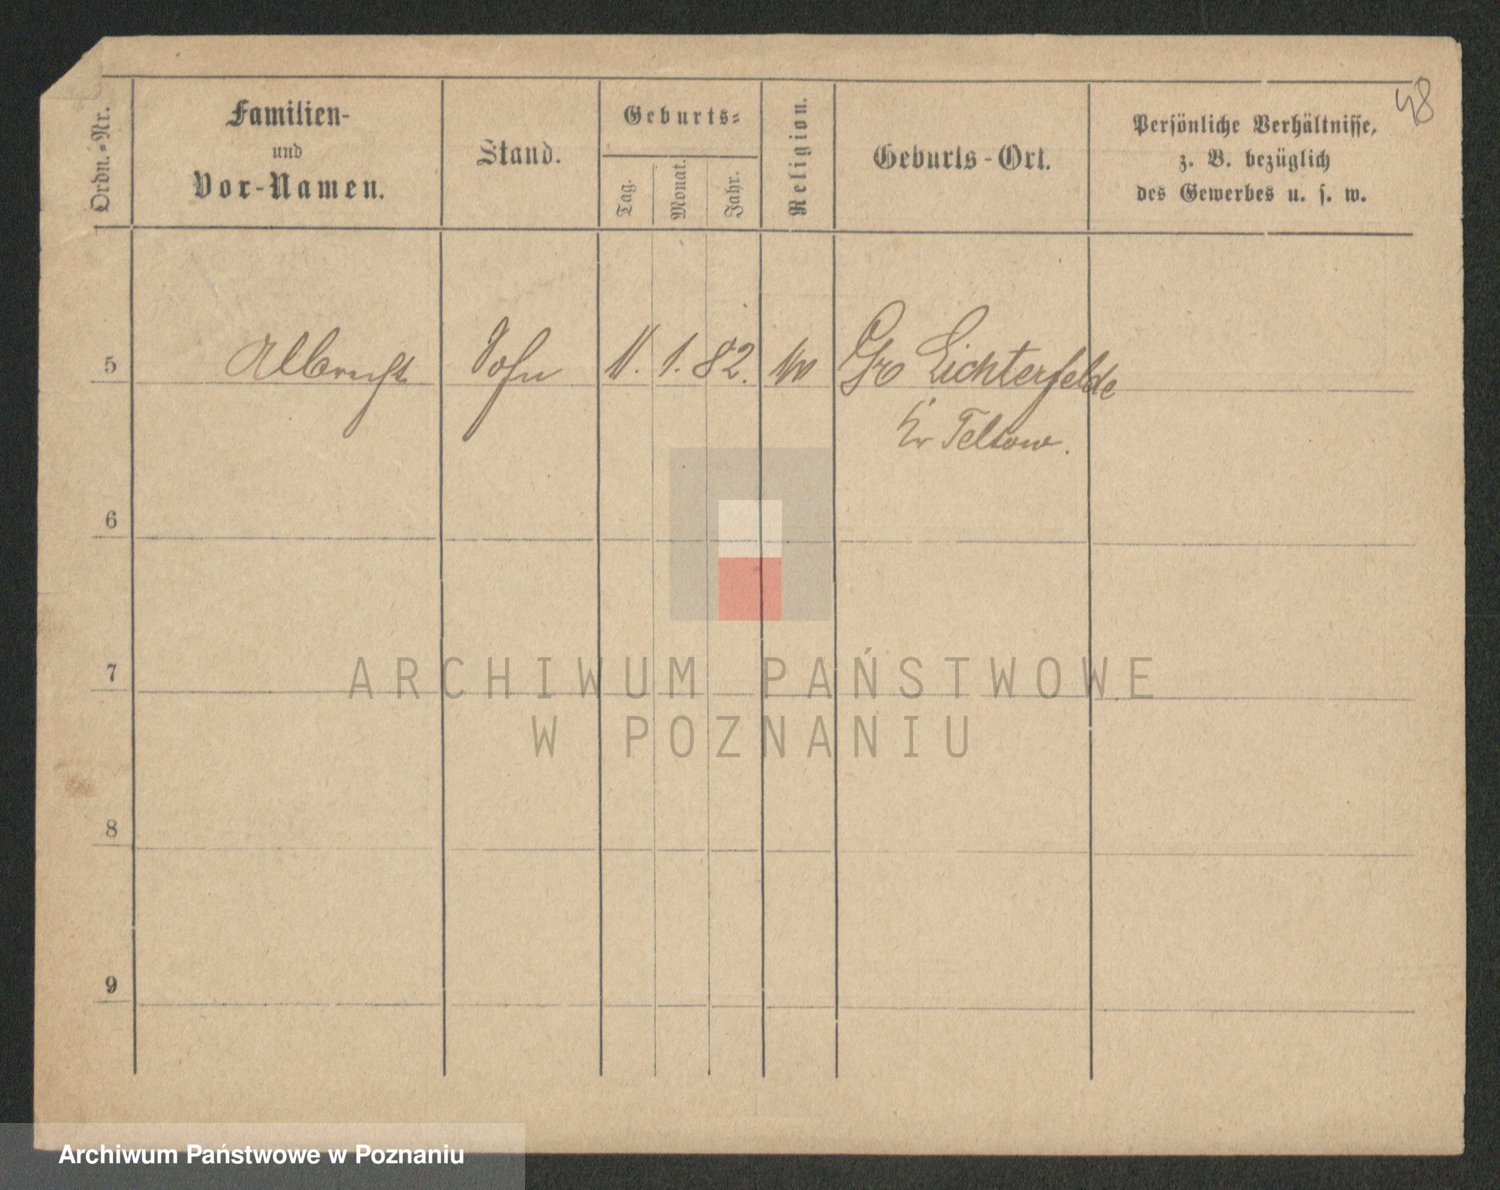 48
Ordn.-Nr.
Familien-
und
Vor-Namen.
Stand.
Geburts-
Tag.
Monat.
Jahr.
Religion.
Geburts-Ort.
Persönliche Verhältnisse,
z. B. bezüglich
des Gewerbes u. s. w.
5 Albrecht Sohn 11. 1. 82. Gr Lichterfelde
Kr Teltow.
6
7
ARCHIWUM PAŃSTWOWE
W POZNANIU
8
9
Archiwum Państwowe w Poznaniu